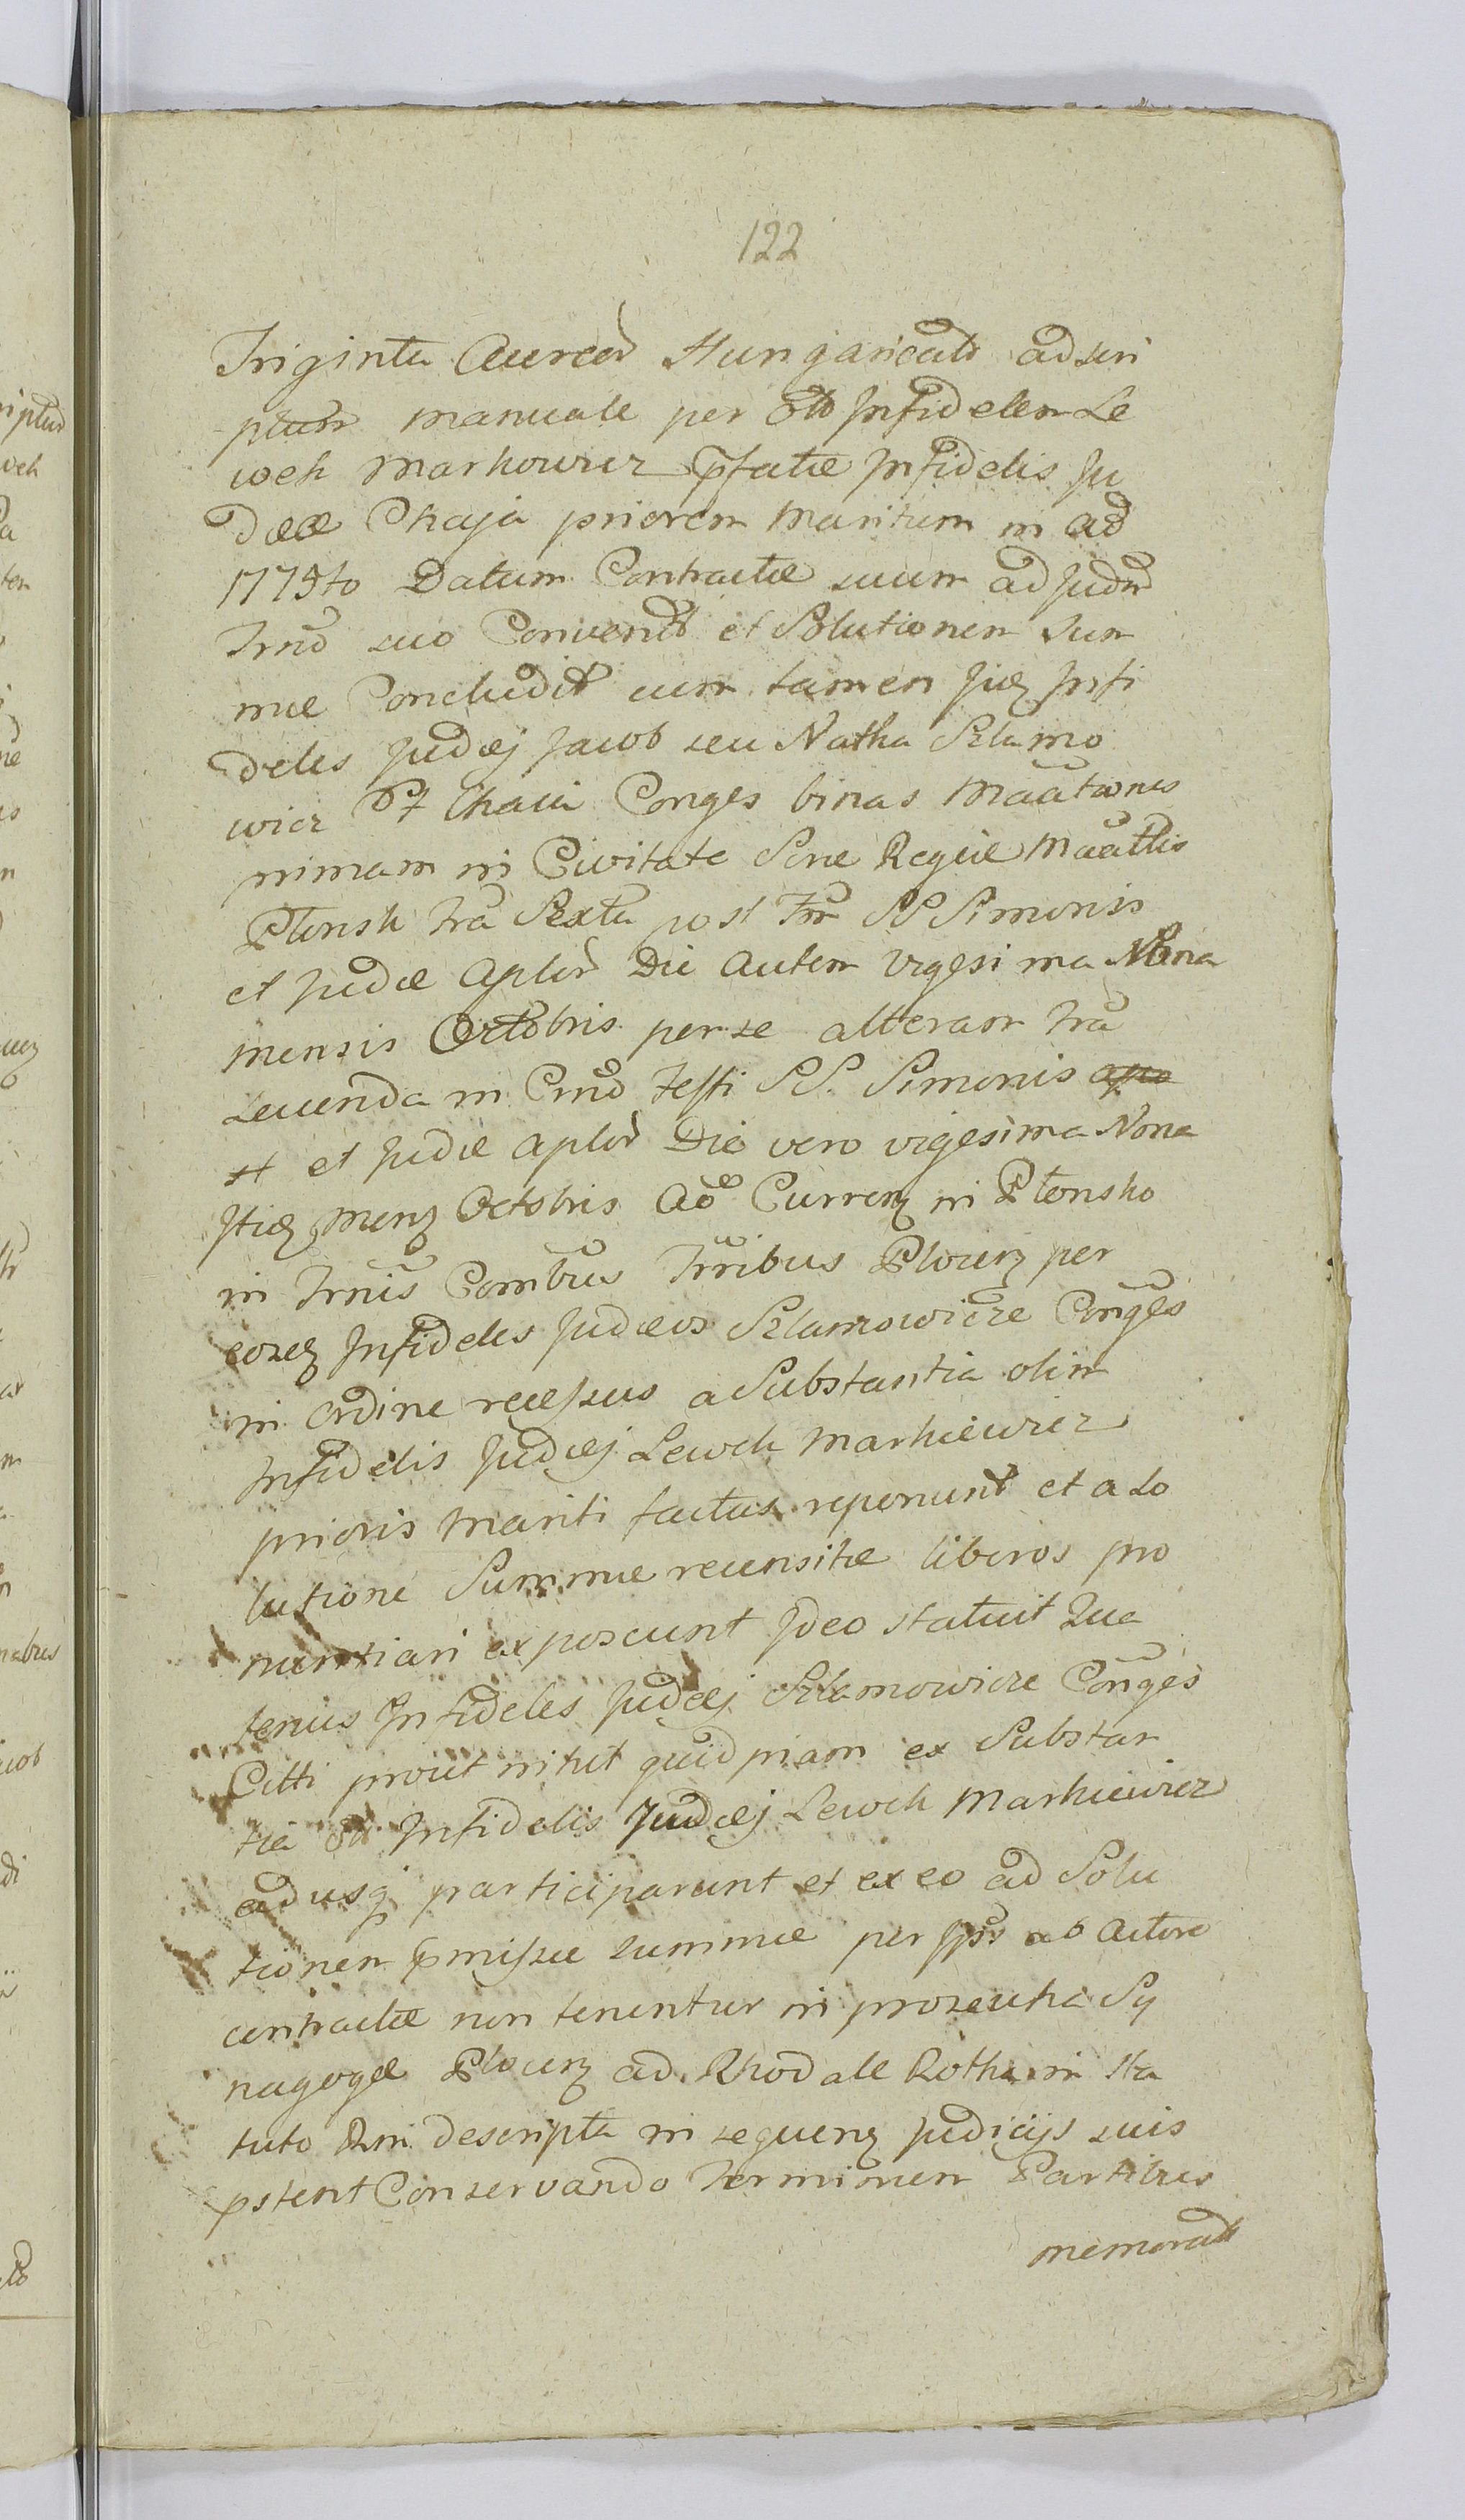 122
Triginta Aureor Hungaricalr ad scri
ptum manuale per olb Infidelem Le
wek Markowicz pfatæ Infidelis Ju
dææ Chaja priorem Maritum in ad
1775to Datum Contractæ suum ad Judm
Trnd suo Convenit et Solutionem Sum
mæ Concludit cum tamen Iiez Infi
deles Judæj Jacob seu Natha Szlamo
wicz et Chaia Conges binas Maãtiones
primam in Civitate Sone Regiæ Maãttis
Płonsk fra Sexta post Fm SS Simonis
et Judæ Aplor Die Autem Vigesima Nona
mensis Octobris per se alteram fra
Secunda in Cmo Festi SS. Simonis apo
st et Judæ Aplor Die vero vigesima Nona
Itiez Menz Octobris Ao Currenz in Płonsko
in Trnis Combus Trribus Płocenz per
eosez Infideles Judæos Szlamowicze Conges
in Ordine recessus a Substantia olim
Infidelis Judæj Lewek Markiewicz
prioris Mariti factas reponunt et a So
lutione Summæ recensitæ liberos pro
nuntiari exposcunt Ideo statuit Qua
tenus Infideles Judæj Szlamowicze Conges
Citti prout nihil quidpiam ex Substan
tia olt Infidelis Judæj Lewek Markiewicz
adusq participarunt et ex eo ad Solu
tionem pmissæ summæ per Ipss ab Actore
contractæ non tenentur in prosecutia Sy
nagogæ Płocenz ad Rhodale Rotha in Sta
tuto Rni descripta in sequenz Judicijs suis
pstent Conservando Terminum Partibus
memorat